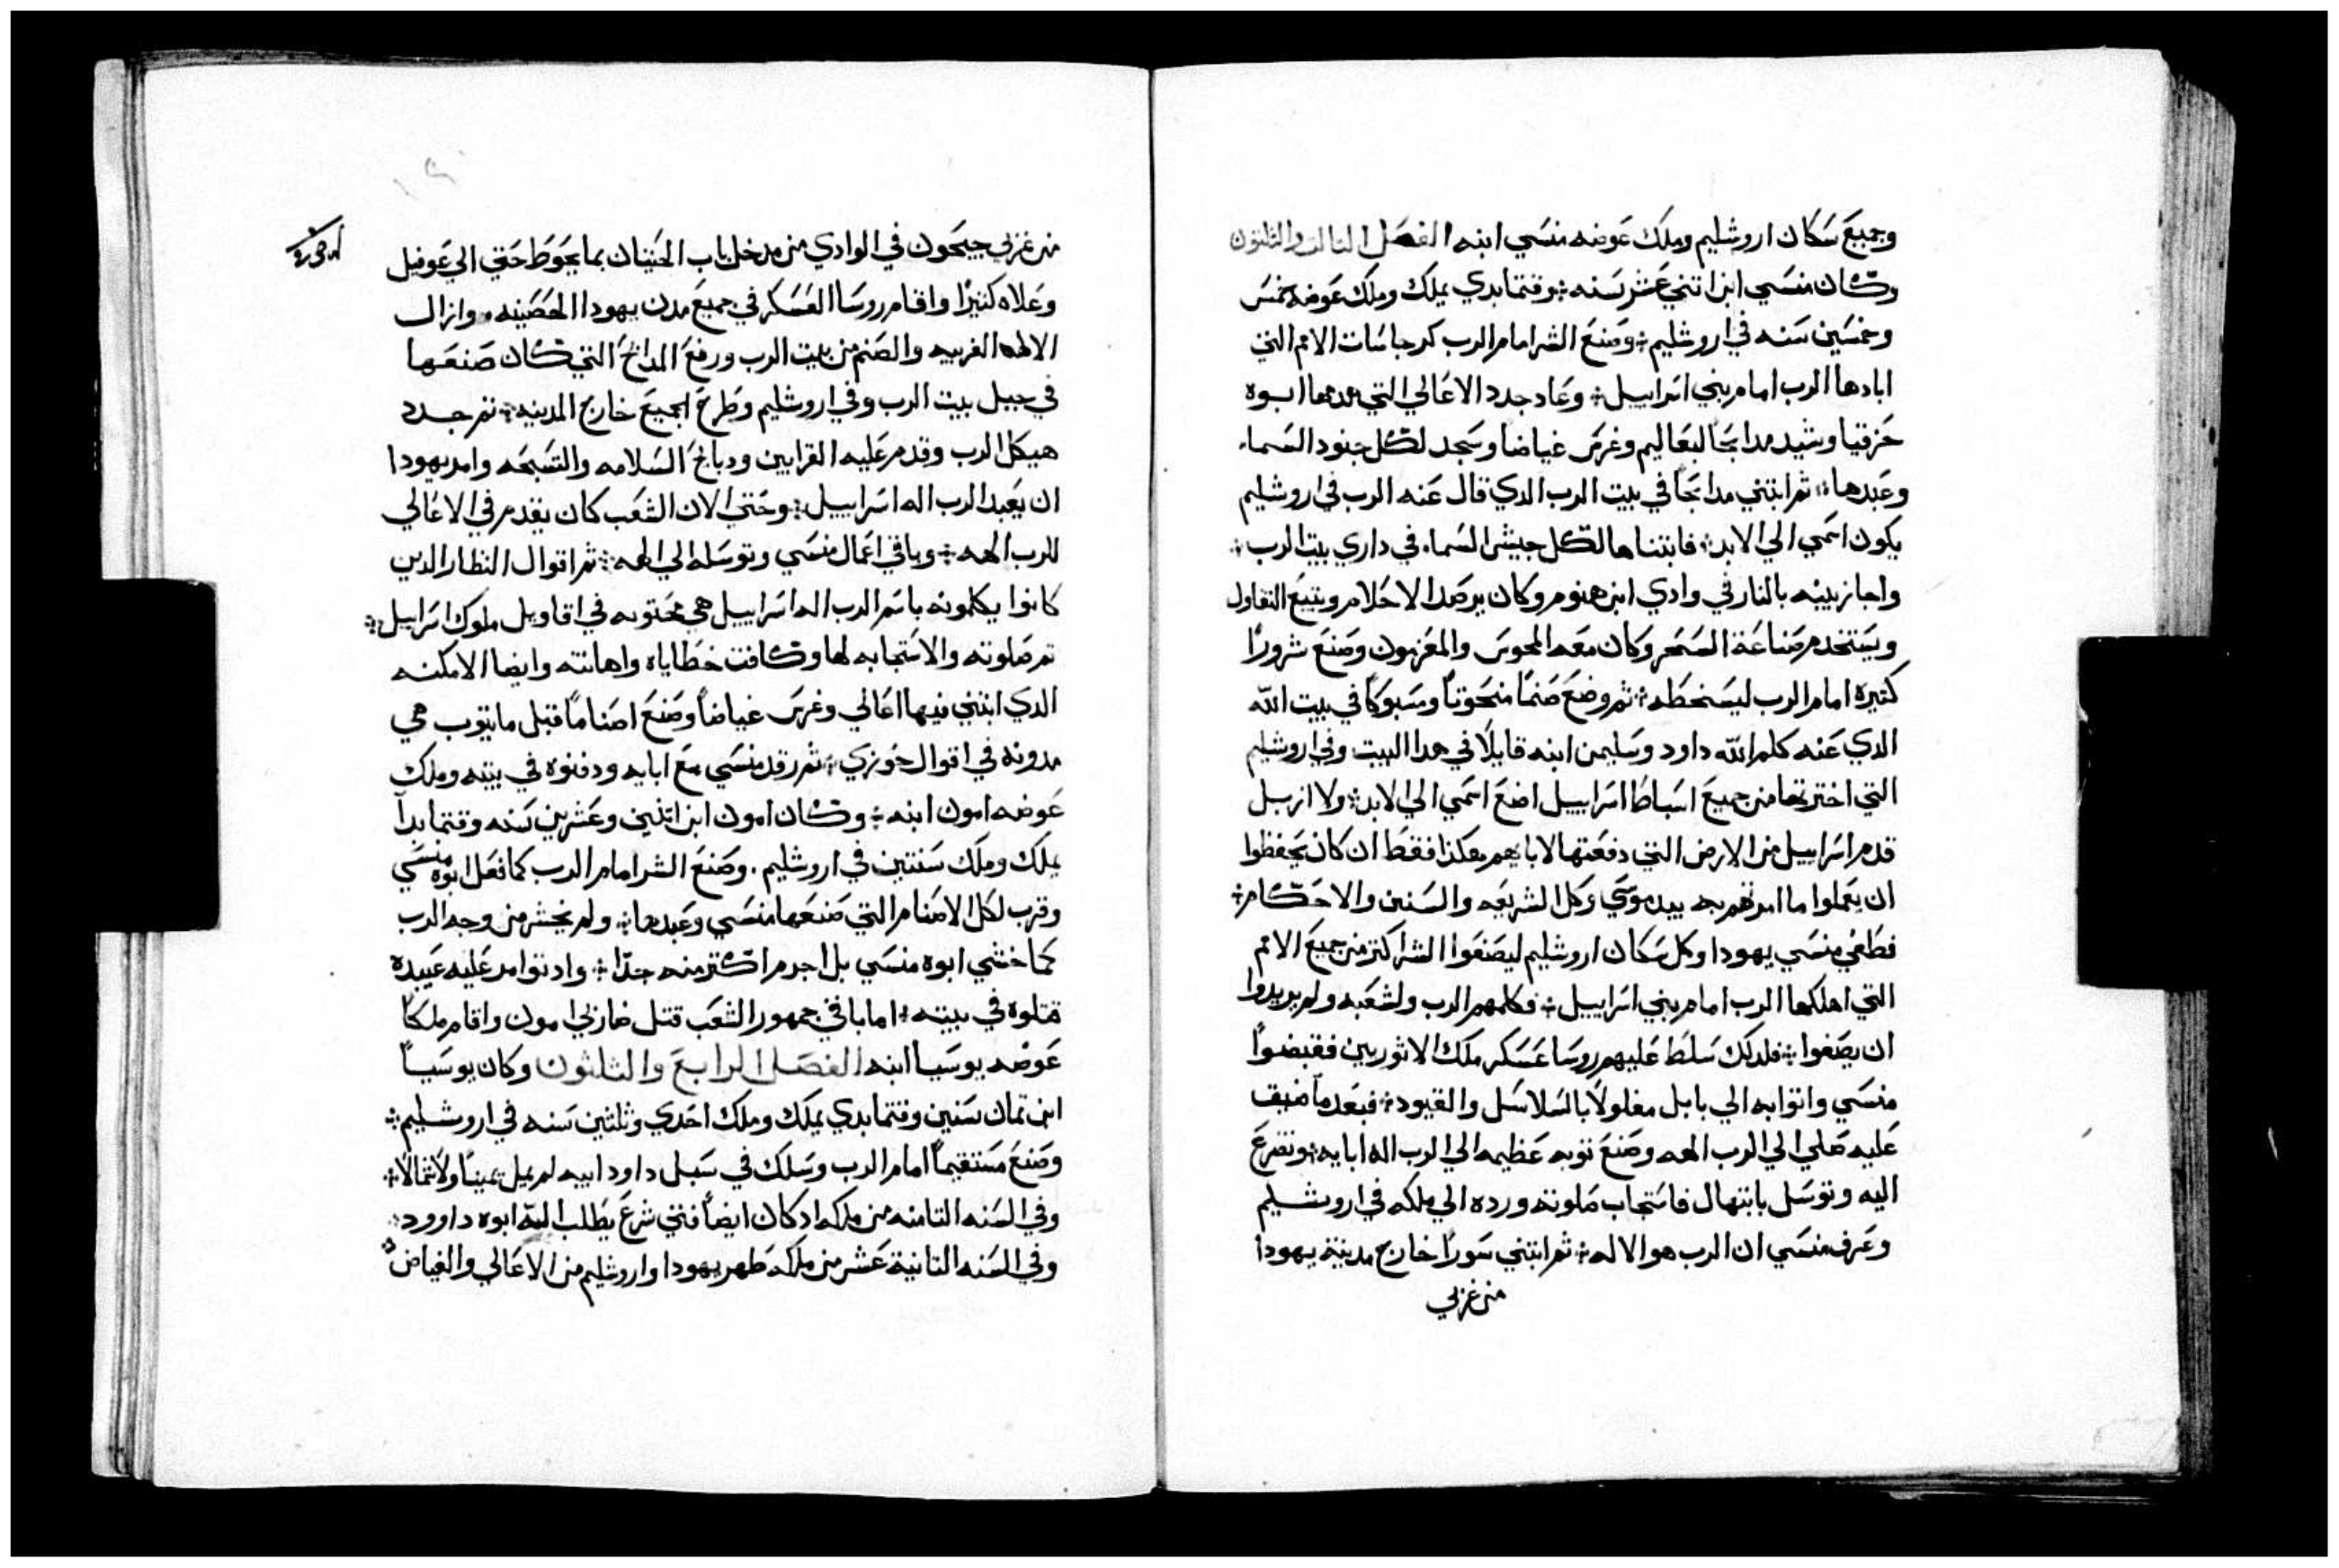 وجميع سكان اروشليم وملك عوضه منسي ابنه الفصل الثالث والثلثون
وكان منسي ابن اتني عشر سنه وقتما بدي يملك وملك عوضه خمس
وخمسين سنه في اروشليم وصنع الشر امام الرب كرجاسات الامم التي
ابادها الرب امام بني اسراييل وعاد جدد الاعالي التي هدمها ابوه
حزقيا وشيد مدابحًا لبعاليم وغرس غياضا وسجد لكل جنود السماء
وعبدها ثم ابتني مدابحًا في بيت الرب الدي قال عنه الرب في اروشليم
يكون اسمي الي الابد فابتناها لكل جيش السماء في داري بيت الرب
واجاز بنيه بالنار في وادي ابن هنوم وكان يرصد الاحلام ويتبع التفاول
ويستخدم صناعة السحر وكان معه المجوس والمعزمون وصنع شرورًا
كثيره امام الرب ليسخطه ثم وضع صنمًا منحوتًا ومسبوكًا في بيت الله
الدي عنه كلم الله داود وسليمن ابنه قايلًا في هدا البيت وفي اروشليم
التي اخترتها من جميع اسباط اسراييل اضع اسمي الي الابد ولا ازيل
قدم اسراييل من الارض التي دفعتها لابايهم هكذا فقط ان كان يحفظوا
ان يعملوا ما امرتهم به بيد موسي وكل الشريعه والسنن والاحكام
فطغي منسي يهودا وكل سكان اروشليم ليصنعوا الشر اكتر من جميع الامم
التي اهلكها الرب امام بني اسراييل فكلمهم الرب ولشعبه ولم يريدوا
ان يصغوا فلدلك سلط عليهم روسا عسكر ملك الاثوريين فقبضوا
منسي واتوا به الي بابل مغلولًا بالسلاسل والقيود فبعد ما ضيق
عليه صلي الي الرب الهه وصنع توبه عظيمه الي الرب اله ابايه وتضرع
اليه وتوسل بابتهال فاستجاب صلوته ورده الي ملكه في اروشليم
وعرف منسي ان الرب هو الاله ثم ابتني سورًا خارج مدينة يهودا
من غربي
من غربي جيحون في الوادي من مدخل باب الحيتان بما يحوط حتي الي عوفيل
وعلاه كثيرًا واقام روسا العسكر في جميع مدن يهودا الحصينه وازال
الالهه الغريبه والصنم من بيت الرب ورفع المدابح التي كان صنعها
في جبل بيت الرب وفي اروشليم وطرح الجميع خارج المدينه ثم جدد
هيكل الرب وقدم عليه القرابين ودبايح السلامه والتسبحه وامر يهودا
ان يعبد الرب اله اسراييل وحتي الان الشعب كان يقدم في الاعالي
للرب الهه وباقي اعمال منسي وتوسله الي الهه ثم اقوال النظار الدين
كانوا يكلمونه باسم الرب اله اسراييل هي محتويه في اقاويل ملوك اسراييل
ثم صلوته والاستجابه لها وكافت خطاياه واهانته وايضا الامكنه
الدي ابتني فيها اعالي وغرس غياضًا وصنع اصنامًا قبل ما يتوب هي
مدونه في اقوال حوزي ثم رقد منسي مع ابايه ودفنوه في بيته وملك
عوضه امون ابنه وكان امون ابن اتنين وعشرين سنه وقتما بدا
يملك وملك سنتين في اروشليم وصنع الشر امام الرب كما فعل ابوه منسي
وقرب لكل الاصنام التي صنعها منسي وعبدها ولم يخش من وجه الرب
كما خشي ابوه منسي بل اجرم اكتر منه جدًا واد توامر عليه عبيده
قتلوه في بيته اما باقي جمهور الشعب قتل ضاربي امون واقام ملكًا
عوضه يوسيا ابنه الفصل الرابع والثلثون وكان يوسيا
ابن تمان سنين وقتما بدي يملك وملك احدي وثلثين سنه في اروشليم
وصنع مستقيمًا امام الرب وسلك في سبل داود ابيه لم يميل يمينًا ولا شمالًا
وفي السنه التامنه من ملكه اد كان ايضًا فتي شرع يطلب اله ابوه داوود
وفي السنه التانية عشر من ملكه طهر يهودا واروشليم من الاعالي والغياض